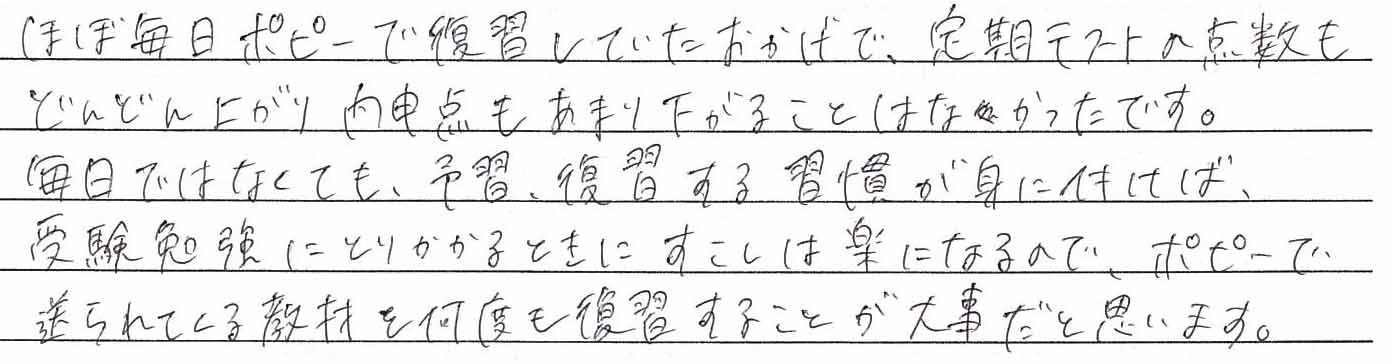 ほぼ毎日ポピーで復習していたおかげで、定期テストの点数も
どんどん上がり内申点もあまり下がることはなかったです。
毎日ではなくても、予習、復習する習慣が身に付けば、
受験勉強にとりかかるときにすこしは楽になるので、ポピーで
送られてくる教材を何度も復習することが大事だと思います。